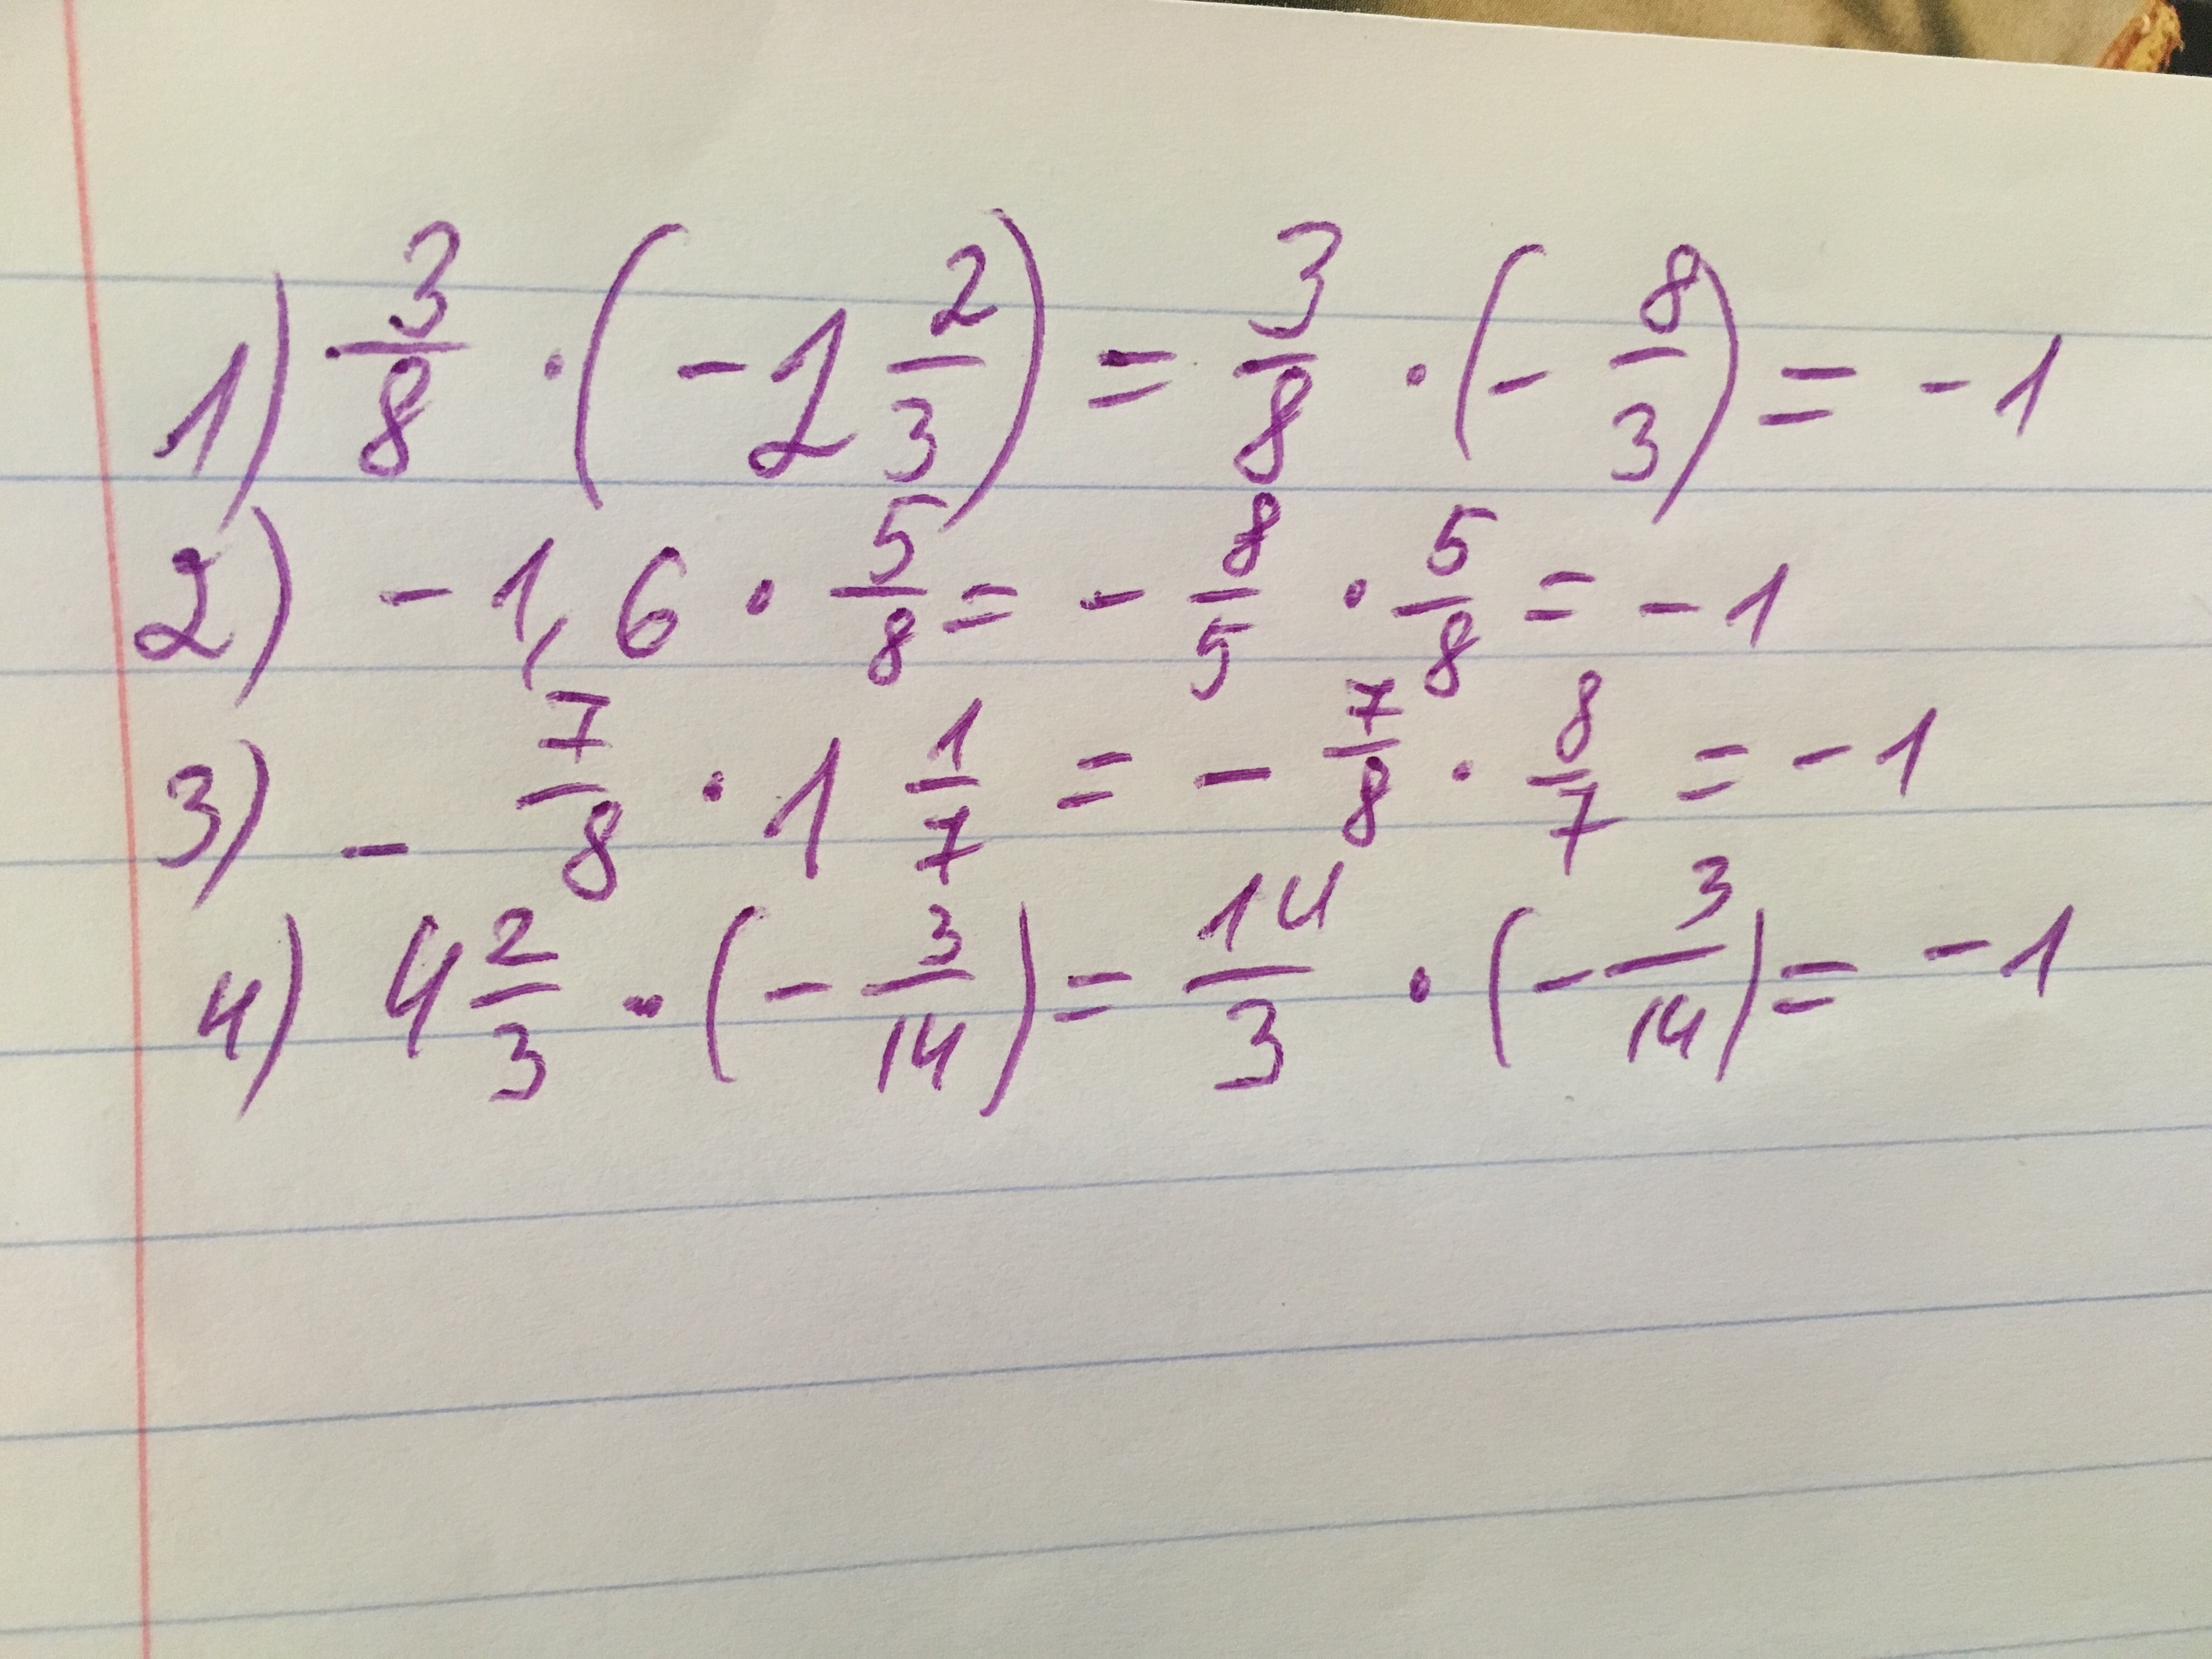 1) 3/8 · (- 2 2/3) = 3/8 · (- 8/3) = - 1
2) - 1,6 · 5/8 = - 8/5 · 5/8 = - 1
3) - 7/8 · 1 1/7 = - 7/8 · 8/7 = - 1
4) 4 2/3 · (- 3/14) = 14/3 · (- 3/14) = - 1